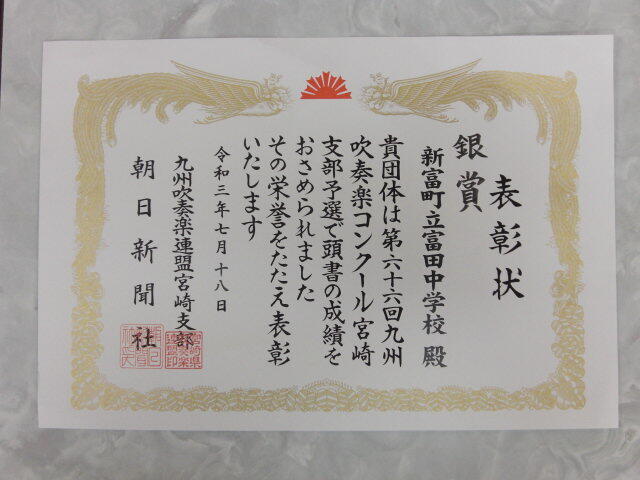 表彰状
銀賞
新富町立富田中学校殿
貴団体は第六十六回九州
吹奏楽コンクール宮崎
支部予選で頭書の成績を
おさめられました
その栄誉をたたえ表彰
いたします
令和三年七月十八日
九州吹奏楽連盟宮崎支部
朝日新聞社